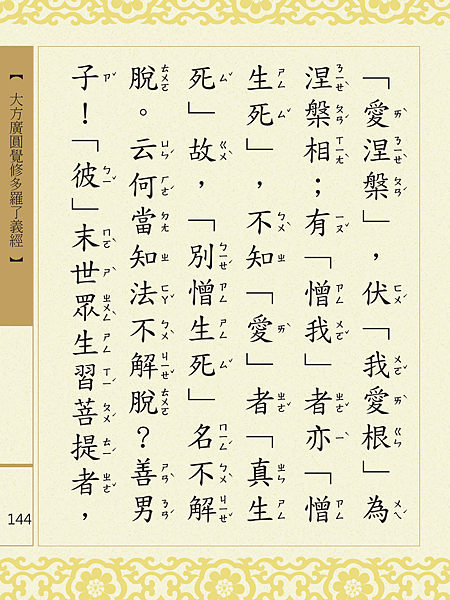 「愛涅槃」，伏「我愛根」為
涅槃相；有「憎我」者亦「憎
生死」，不知「愛」者「真生
死」故，「別憎生死」名不解
脫。云何當知法不解脫？善男
子！「彼」末世眾生習菩提者，
【大方廣圓覺修多羅了義經】
144